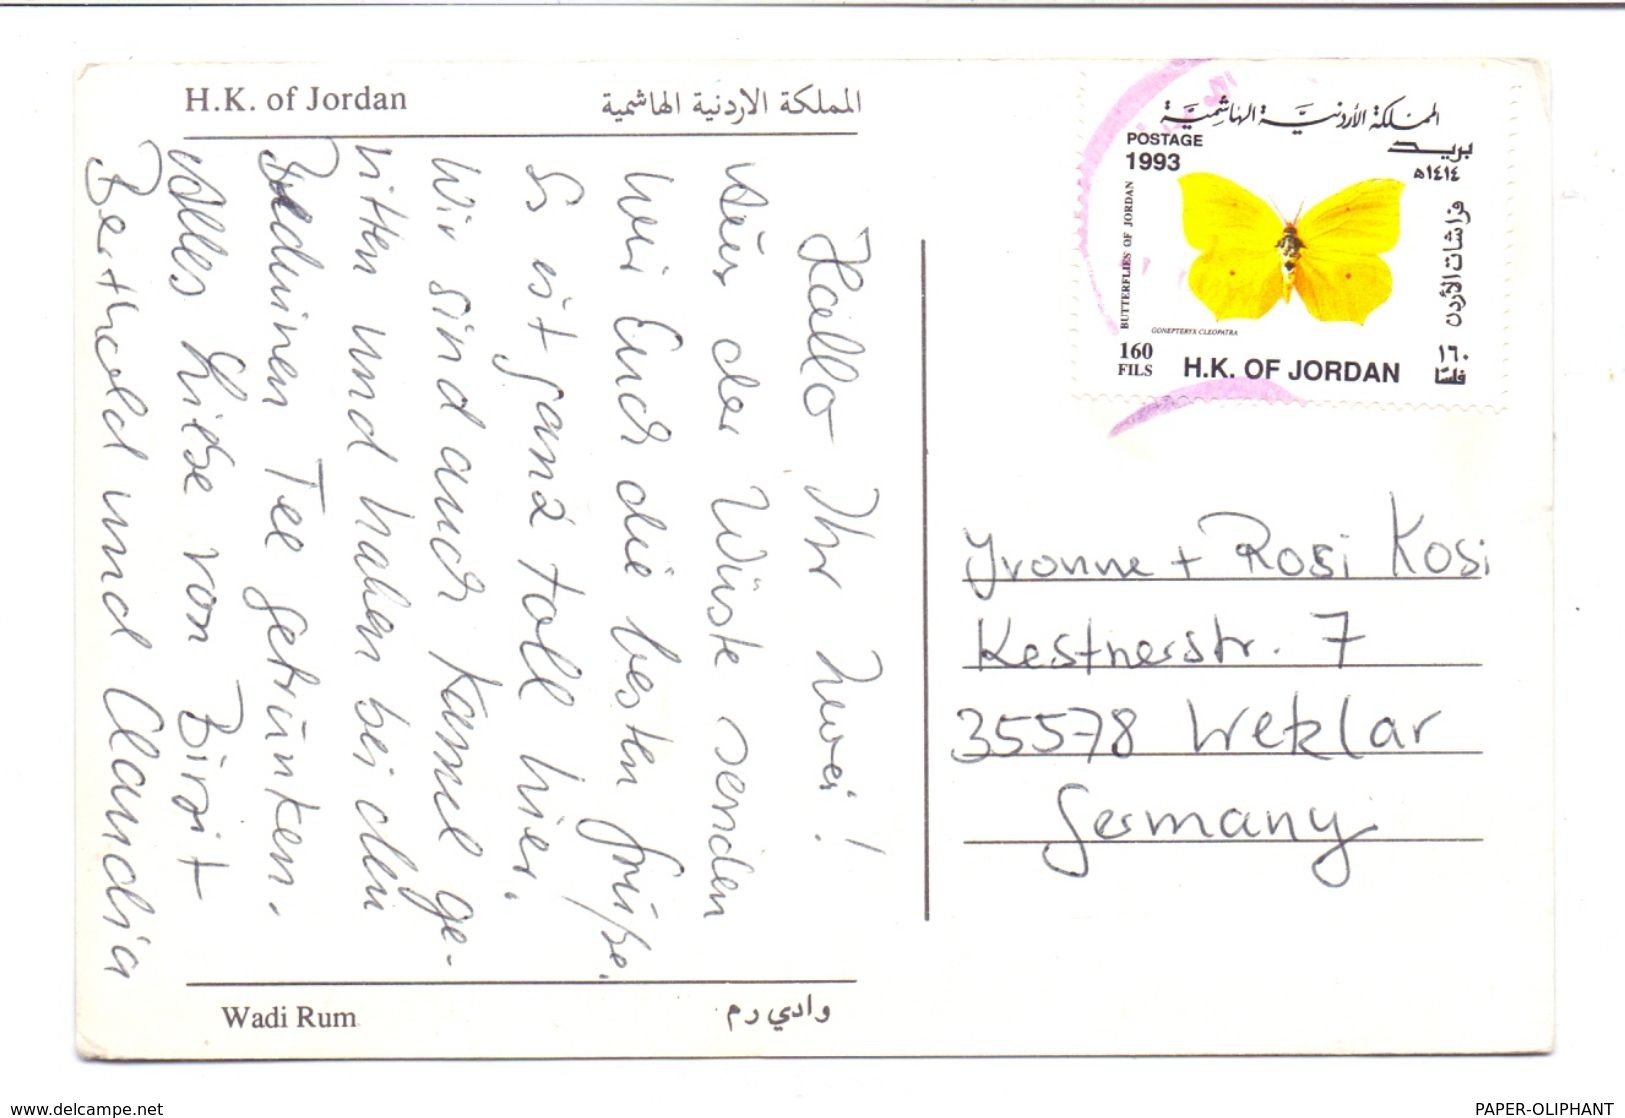 H.K. of Jordan
المملكة الاردنية الهاشمية
Hallo Ihr Zwei!
Aus der Wüste senden
wir Euch die besten Grüße.
Es ist ganz toll hier.
Wir sind auch Kamel ge-
ritten und haben bei den
Beduinen Tee getrunken.
Alles Liebe von Birgit
Berthold und Claudia
Wadi Rum
وادي رم
المملكة الأردنية الهاشمية
POSTAGE
1993
بريد
١٤١٤ھ
BUTTERFLIES OF JORDAN
فراشات الأردن
GONEPTERYX CLEOPATRA
160
FILS
H.K. OF JORDAN
١٦٠
فلسًا
Yvonne + Rosi Kosi
Kestnerstr. 7
35578 Wetzlar
Germany
www.delcampe.net
PAPER-OLIPHANT